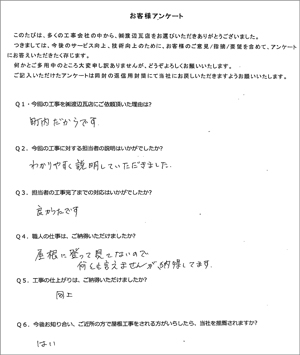 お客様アンケート
このたびは、多くの工事会社の中から、㈱渡辺瓦店をお選びいただきありがとうございました。
つきましては、今後のサービス向上、技術向上のために、お客様のご意見/指摘/要望を含めて、アンケート
にお答えいただきたく存じます。
何かとご多用中のところ大変申し訳ありませんが、どうぞよろしくお願いいたします。
ご記入いただけたアンケートは同封の返信用封筒にて当社にお戻しいただきますようお願いいたします。
Q1・今回の工事を㈱渡辺瓦店にご依頼頂いた理由は?
町内だからです
Q2．今回の工事に対する担当者の説明はいかがでしたか?
わかりやすく説明していただきました.
Q3．担当者の工事完了までの対応はいかがでしたか?
良かったです
Q4．職人の仕事は、ご納得いただけましたか?
屋根に登って見てないので
何とも言えませんが納得してます.
Q5．工事の仕上がりは、ご納得いただけましたか?
同上
Q6．今後お知り合い、ご近所の方で屋根工事をされる方がいらしたら、当社を推薦されますか?
はい